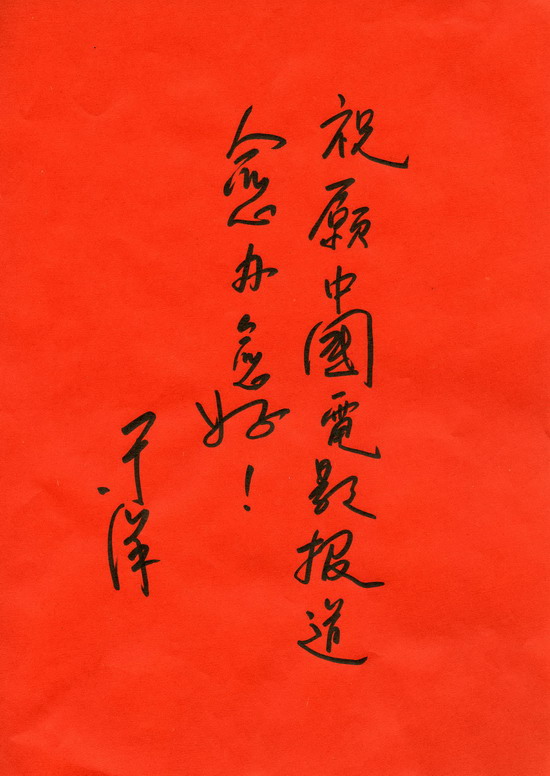 祝愿中國電影报道
愈办愈好！
于洋